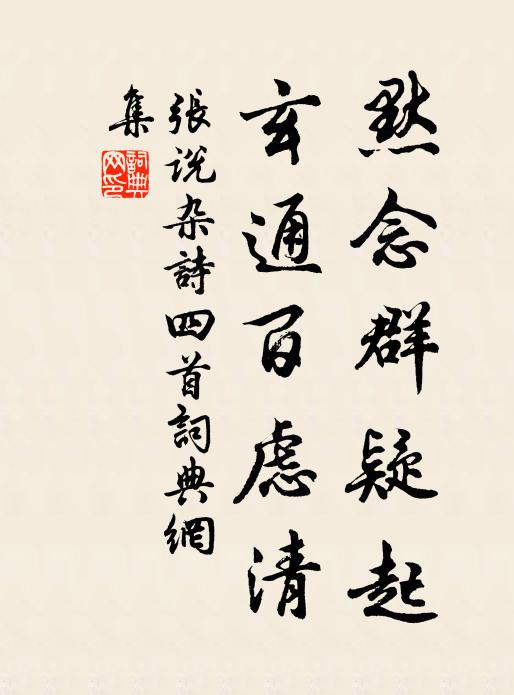 默念群疑起
玄通百虑清
張說杂詩四首詞典網
集
詞典
网印